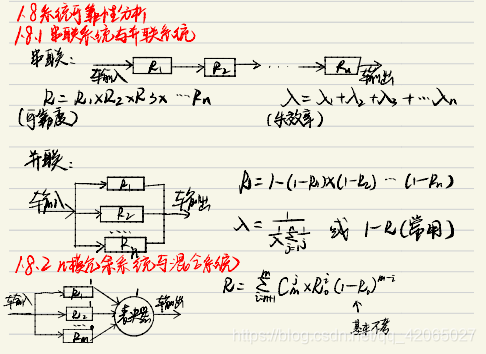 1.8 系统可靠性分析
1.8.1 串联系统与并联系统
串联:
输入 R₁ R₂ ... Rn 输出
R = R₁×R₂×R3× ⋯Rn
(可靠度)
λ = λ₁+λ₂+λ₃+⋯λn
(失效率)
并联:
输入 R₁ R₂ ... Rn 输出
R = 1-(1-R₁)×(1-R₂) ⋯ (1-Rn)
λ = 1/(1/λ Σ 1/j) 或 1-R(常用)
1.8.2 n模冗余系统与混合系统
输入 R₁ R₂ Rm 表决器 输出
R = Σ Cₘⁱ×R₀ⁱ(1-R₀)ᵐ⁻ⁱ
基本不考
https://blog.csdn.net/qq_42065027